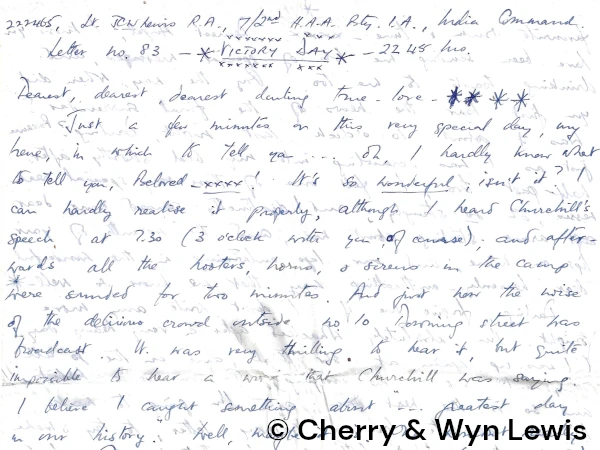 222465, Lt. JCW Lewis R.A., 7/2nd H.A.A. Rty. I.A., India Command.
Letter no. 83 — * VICTORY DAY * — 2245 hrs.
Dearest, dearest, dearest darling true-love —
Just a few minutes on this very special day, my
here, in which to tell you .... oh, I hardly know what
to tell you, Beloved - xxxx! It's so wonderful, isn't it? I
can hardly realise it properly, although I heard Churchill's
speech, at 7.30 (3 o'clock with you of course), and after-
wards all the hooters, horns, & sirens in the camp
were sounded for two minutes. And just now the noise
of the delirious crowd outside no. 10 Downing street was
broadcast.. It was very thrilling to hear it, but quite
impossible to hear a word that Churchill was saying.
I believe I caught something about "... greatest day
in our history." Well,
© Cherry & Wyn Lewis